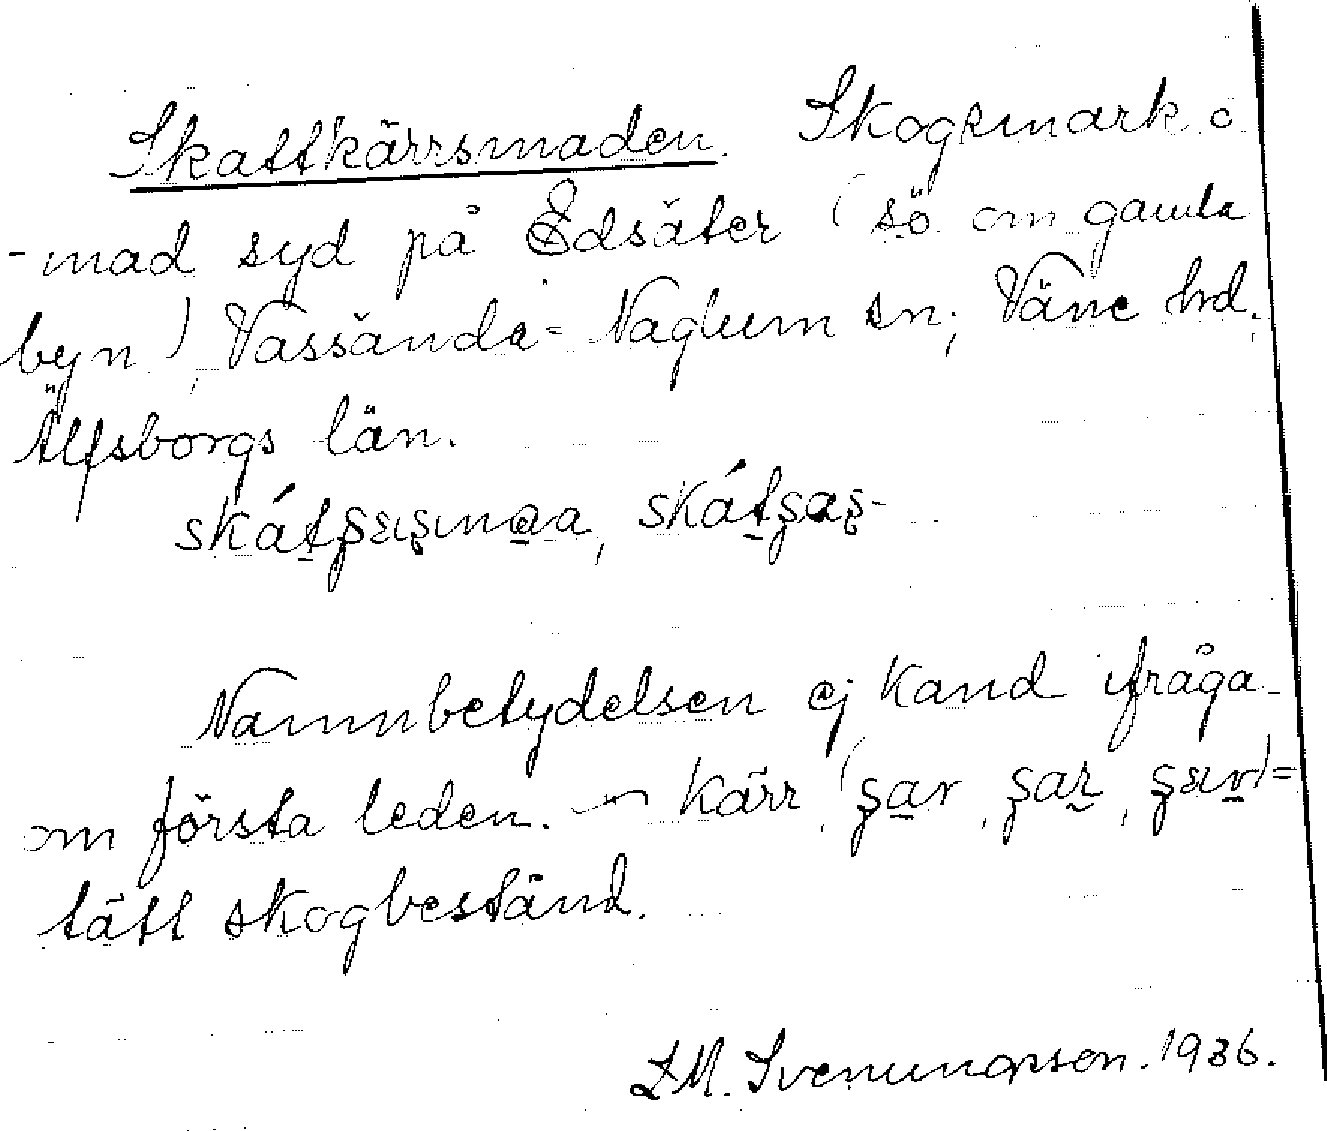 Skattkärrsmaden. Skogsmark o.
-mad syd på Edsäter (sö om gamla
byn), Vassända-Naglum sn, Väne hd.
Älfsborgs län.
Namnbetydelsen ej känd ifråga
om första leden. — Kärr =
tätt skogbestånd.
L.M. Svenungsson. 1936.